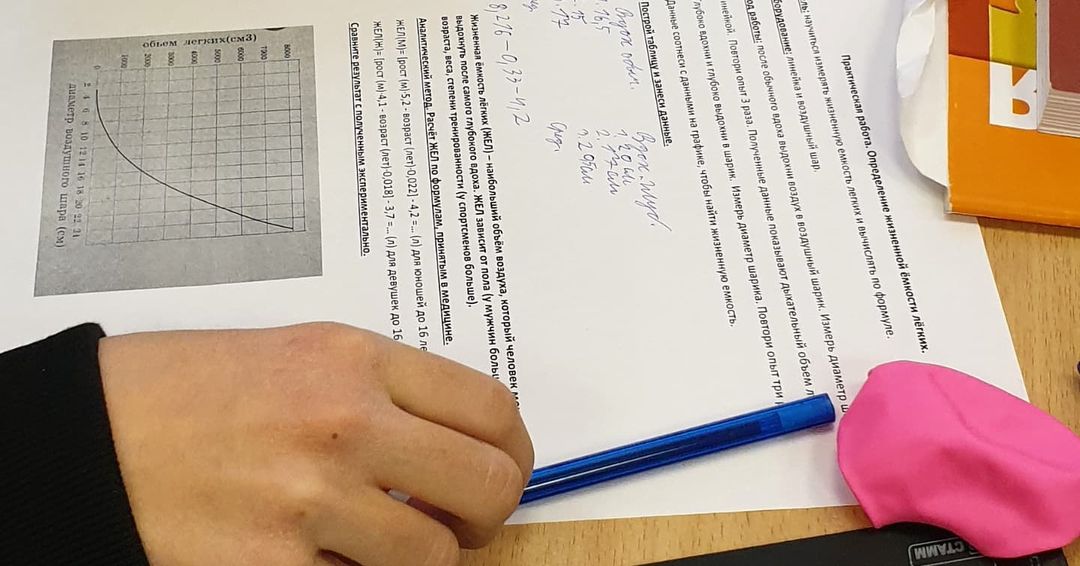 Практическая работа. Определение жизненной ёмкости лёгких.
научиться измерять жизненную емкость легких и вычислять по формуле.
линейка и воздушный шар.
работы: после обычного вдоха выдохни воздух в воздушный шарик. Измерь диаметр
линейкой. Повтори опыт 3 раза. Полученные данные показывают дыхательный объем
глубоко вдохни и глубоко выдохни в шарик. Измерь диаметр шарика. Повтори опыт три
Данные соотнеси с данными на графике, чтобы найти жизненную емкость.
Построй таблицу и занеси данные.
Вдох глуб.
8,216-0,33-4,2
Жизненная ёмкость лёгких (ЖЕЛ) – наибольший объём воздуха, который человек
выдохнуть после самого глубокого вдоха. ЖЕЛ зависит от пола (у мужчин
возраста, веса, степени тренированности (у спортсменов больше).
Аналитический метод. Расчёт ЖЕЛ по формулам, принятым в медицине.
ЖЕЛ(М)= [рост (м)·5,2 - возраст (лет)·0,022] - 4,2 =... (л) для юношей до 16
ЖЕЛ(Ж)= [рост (м)·4,1 - возраст (лет)·0,018] - 3,7 =... (л) для девушек до 16
Сравните результат с полученным экспериментально.
объем легких(см3)
8000
7000
6000
5000
4000
3000
2000
1000
0
2 4 6 8 10 12 14 16 18 20 22 24
диаметр воздушного шара (см)
СТАММ